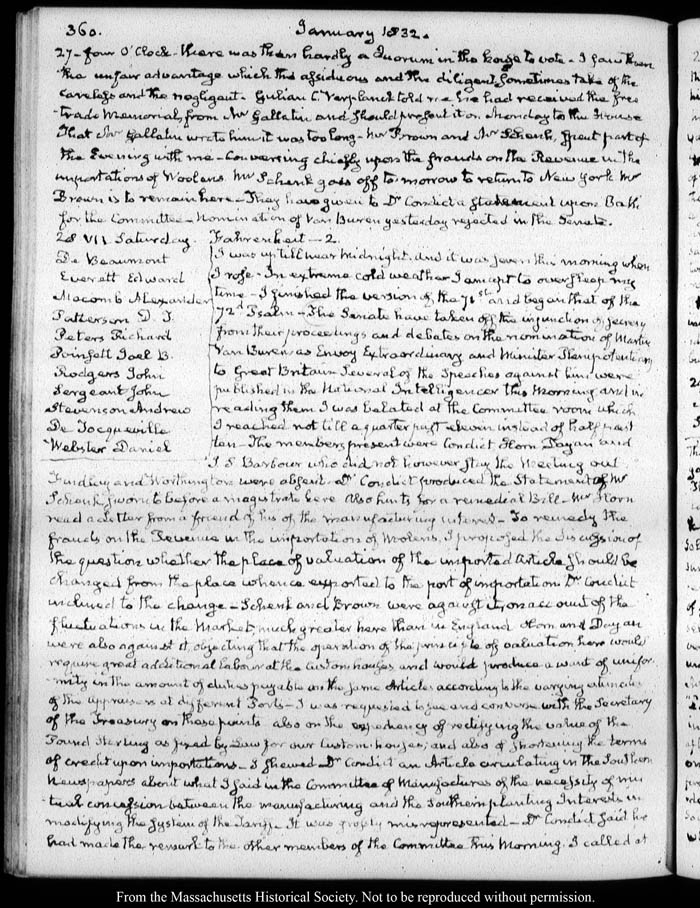 360.
January 1832.
27 - four O'Clock - there was then hardly a Quorum in the house to vote - I saw then
the unfair advantage which the assiduous and the diligent sometimes take of the
careless and the negligent. Gulian C. Verplanck told me he had received the free
trade Memorial, from Mr Gallatin and should present it on Monday to the House
That Mr Gallatin wrote him it was too long - Mr Brown and Mr Schenk, spent part of
the Evening with me - Conversing chiefly upon the frauds on the Revenue in the
importations of Woolens. Mr Schenk goes off to-morrow to return to New York Mr
Brown is to remain here - They have given to Dr Condict a Statement upon Oath
for the Committee - Nomination of Van Buren yesterday rejected in the Senate.
28 VII. Saturday.
De Beaumont
Everett Edward
Macomb Alexander
Patterson D. T.
Peters Richard
Poinsett Joel B.
Rodgers John
Sergeant John
Stevenson Andrew
De Tocqueville
Webster Daniel
Fahrenheit - 2.
I was up till near midnight, and it was seven this morning when
I rose - In extreme cold weather I am apt to oversleep my
time - I finished the version of the 71st and began that of the
72d Psalm - The Senate have taken off the injunction of secrecy
from their proceedings and debates on the nomination of Martin
Van Buren as Envoy Extraordinary and Minister Plenipotentiary
to Great Britain Several of the Speeches against him were
published in the National Intelligencer this Morning and in
reading them I was belated at the Committee room which
I reached not till a quarter past eleven instead of half past
ten - The members present were Condict Horn Dayan and
J S Barbour who did not however stay the Meeting out
Findlay and Worthington were absent. Dr Condict produced the Statement of Mr
Schenk sworn to before a magistrate here Also hints for a remedial Bill - Mr Horn
read a Letter from a friend of his of the manufacturing interest - To remedy the
frauds on the Revenue in the importation of Woolens, I proposed the discussion of
the question whether the place of valuation of the imported Article should be
changed from the place whence exported to the port of importation Dr Condict
inclined to the change - Schenk and Brown were against it, on account of the
fluctuations in the Market, much greater here than in England Horn and Dayan
were also against it, objecting that the operation of the principle of valuation here would
require great additional labour at the Custom houses, and would produce a want of unifor-
-mity in the amount of duties payable on the same Articles according to the varying estimates
of the appraisers at different Ports - I was requested to see and converse with the Secretary
of the Treasury on those points also on the expediency of rectifying the value of the
Pound Sterling as fixed by Law for our Custom-houses; and also of shortening the terms
of credit upon importations - I shewed Dr Condict an Article circulating in the Southern
Newspapers about what I said in the Committee of Manufactures of the necessity of mu-
-tual concession between the manufacturing and the Southern planting Interests in
modifying the System of the Tariff - It was grossly misrepresented - Dr Condict said he
had made the remark to the other members of the Committee this Morning. I called at
From the Massachusetts Historical Society. Not to be reproduced without permission.